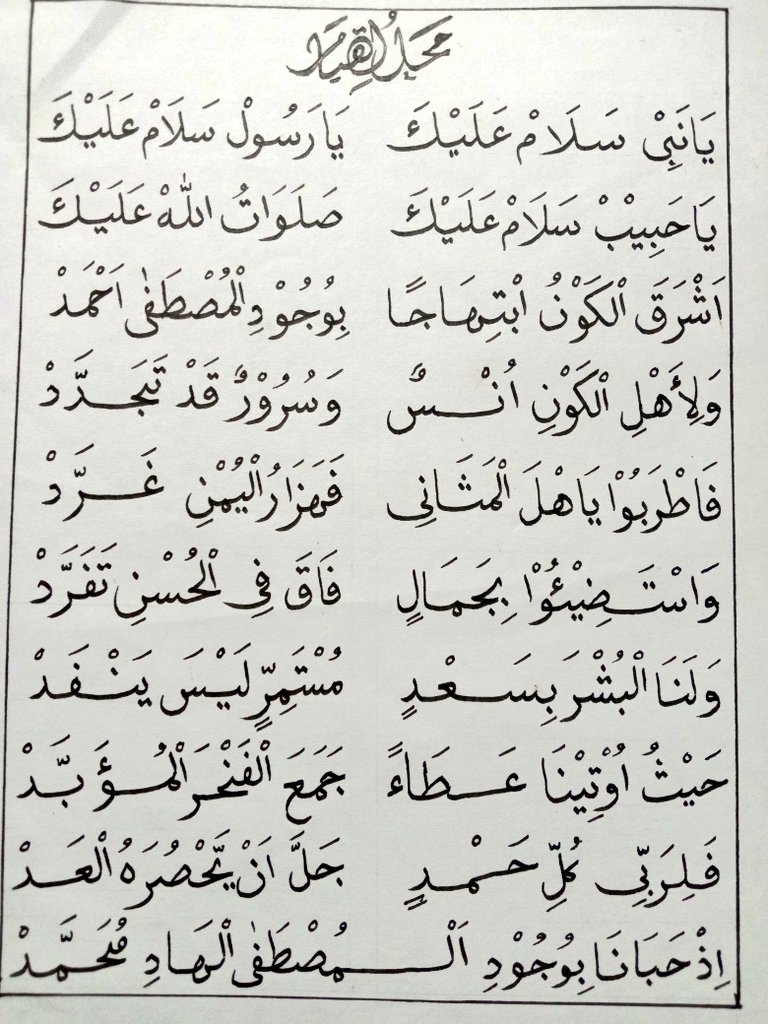 محل القيام
يَانَبِىْ سَلَامْ عَلَيْكَ يَارَسُولْ سَلَامْ عَلَيْكَ
يَاحَبِيْبْ سَلَامْ عَلَيْكَ صَلَوَاتُ اللّٰهْ عَلَيْكَ
اَشْرَقَ الْكَوْنُ ابْتِهَاجًا بِوُجُوْدِ الْمُصْطَفٰى اَحْمَدْ
وَلِأَهْلِ الْكَوْنِ اُنْسٌ وَسُرُوْرٌ قَدْ تَجَدَّدْ
فَاطْرَبُوْا يَاهْلَ الْمَثَانِى فَهَزَارُ الْيُمْنِ غَرَّدْ
وَاسْتَضِيْئُوْا بِجَمَالٍ فَاقَ فِى الْحُسْنِ تَفَرَّدْ
وَلَنَا الْبُشْرَ بِسَعْدٍ مُسْتَمِرٍّ لَيْسَ يَنْفَدْ
حَيْثُ اُوْتِيْنَا عَطَاءً جَمَعَ الْفَخْرَ الْمُؤَبَّدْ
فَلِرَبِّى كُلِّ حَمْدٍ جَلَّ اَنْ يَّحْصُرَهُ الْعَدْ
اِذْ حَبَانَا بِوُجُوْدِ اَلْمُصْطَفٰى الْهَادِ مُحَمَّدْ